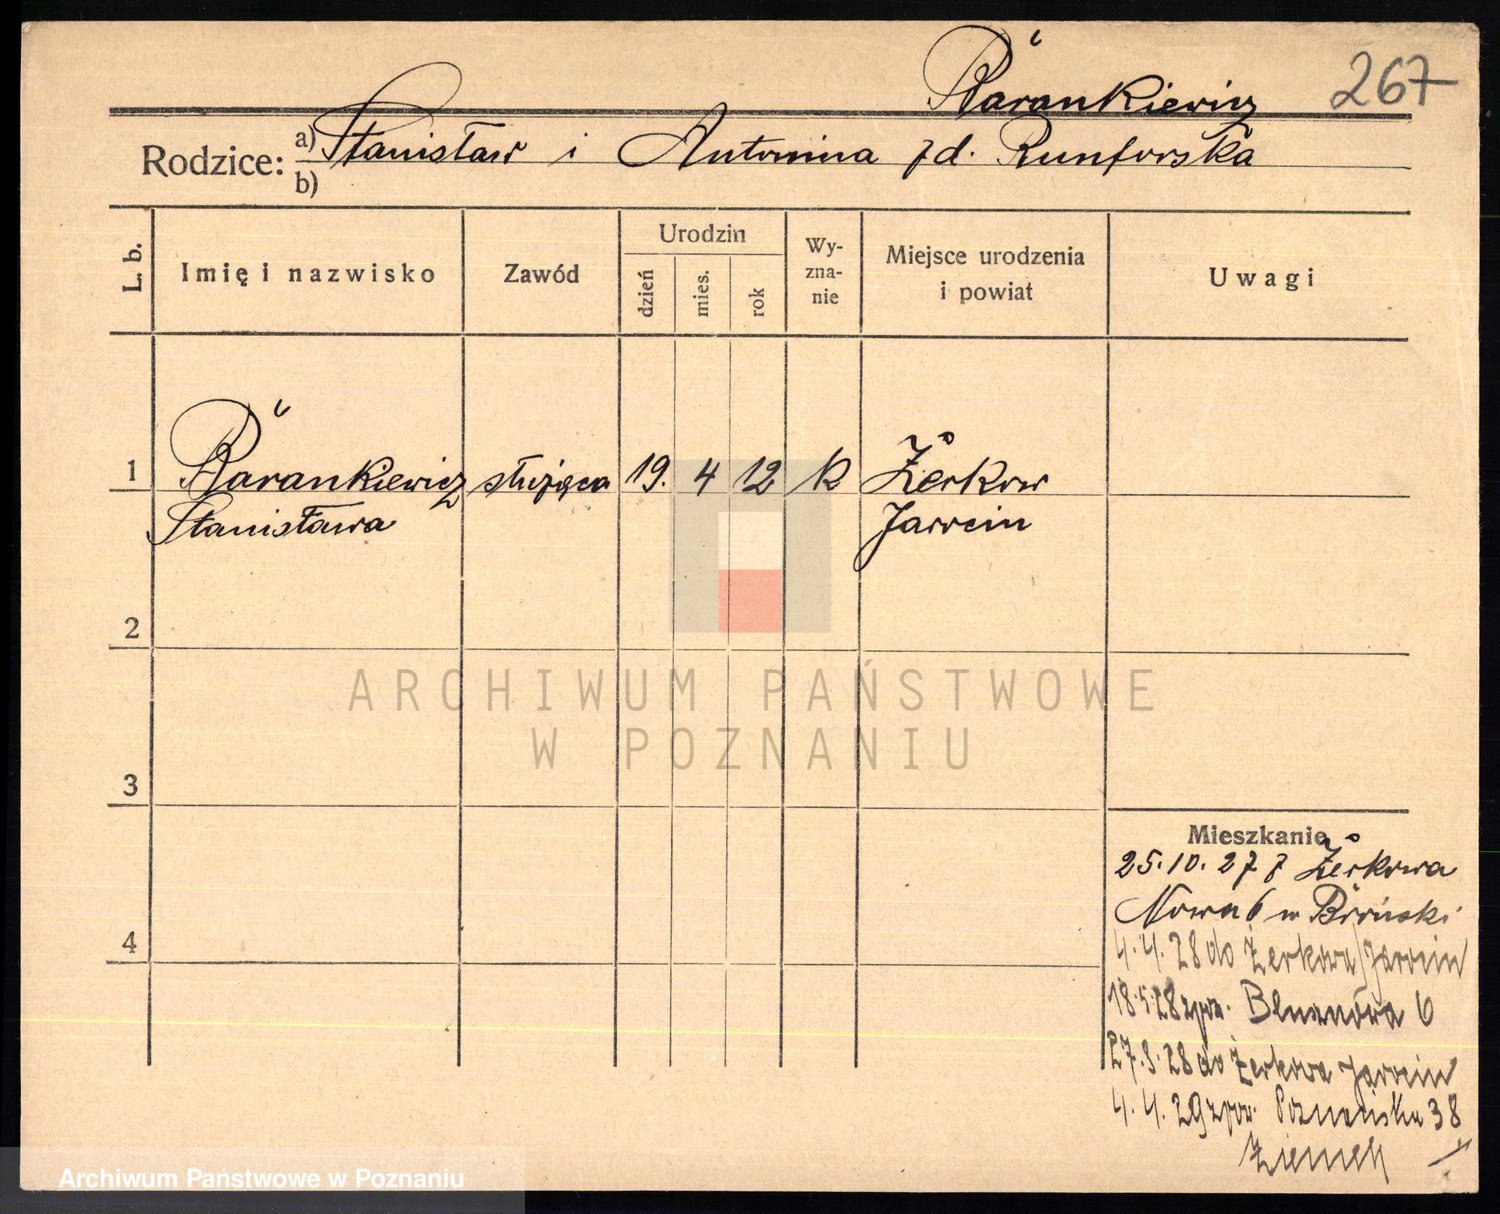 Barankiewicz 267
Rodzice: a) Stanisław i Antonina zd.
b)
L. b. Imię i nazwisko Zawód Urodzin dzień mies. rok Wyzna-nie Miejsce urodzenia i powiat Uwagi
1 Barankiewicz służąca 19. 4 12 k Żerkow
Stanisława Jarocin
2
ARCHIWUM PAŃSTWOWE
W POZNANIU
3
Mieszkanie
25.10.27 z Żerkowa
Nowa 6 w
4
4.4.28 do Żerkowa/Jarocin
18.5.28 6
28 do Żerkowa Jarocin
4.4.29 Poznańska 38
Ziemek
Archiwum Państwowe w Poznaniu